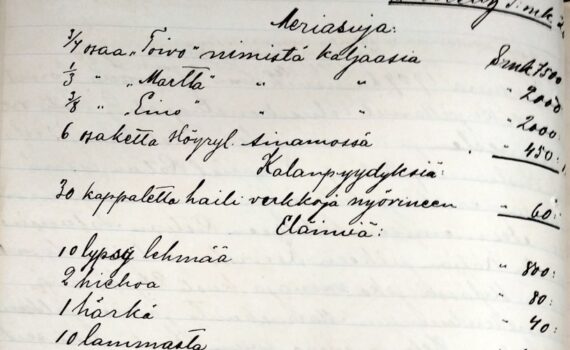 Meriasioja:
3/4 osaa „Toivo" nimistä kaljaasia Smk 7500
1/3 " „Martta" " " " 2000
3/8 " „Eino" " " " 2000
6 osaketta Höyryl. Ainamossa " 450:
Kalanpyydyksiä:
30 kappaletta haili verkkoja nyörineen " 60:
Eläimiä:
10 lypsy lehmää " 800:
2 hiehoa " 80:
1 härkä " 40:
10 lammasta